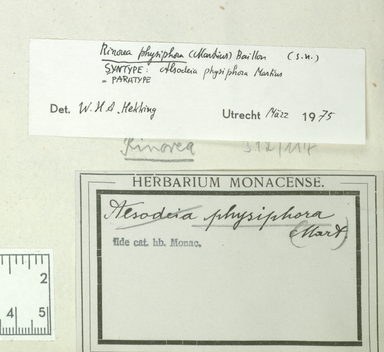 Rinorea physiphora (Martius) Baillon (s.n.)
SYNTYPE: Alsodeia physiphora Martius
= PARATYPE
Det. W.H.A. Hekking Utrecht März 1975
Rinorea 312/114
HERBARIUM MONACENSE.
Alsodeia physiphora
(Mart)
fide cat. hb. Monac.
2
4 5